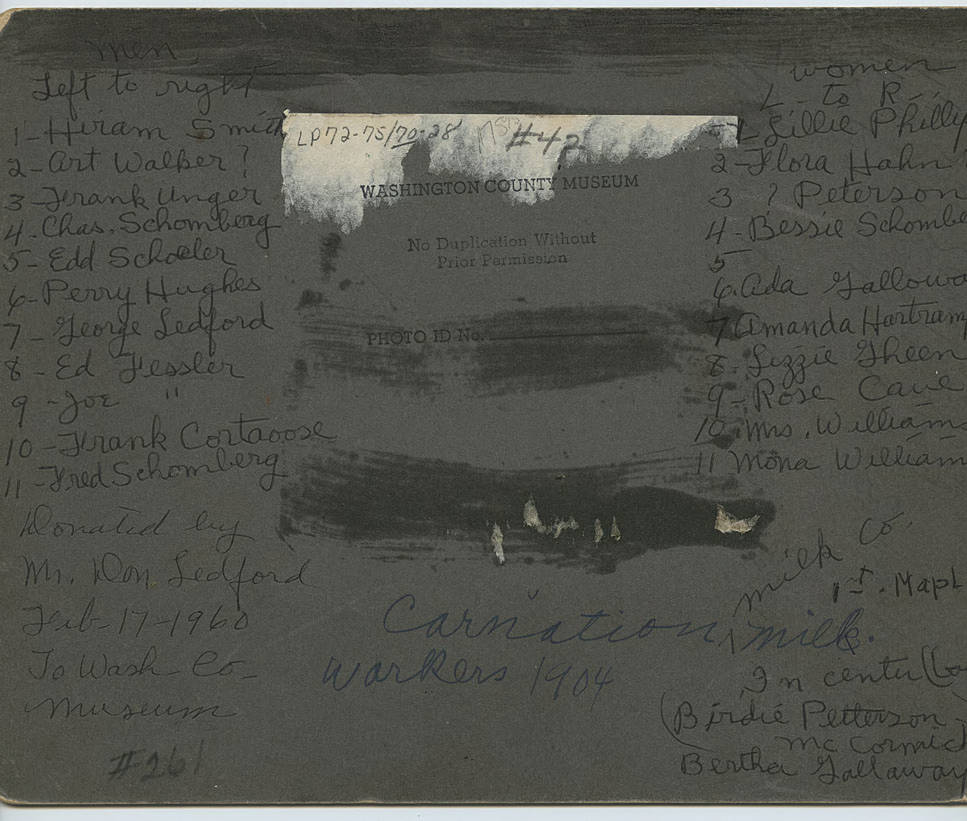 men
Left to right
1-Hiram Smith
2-Art Walker?
3-Frank Unger
4.-Chas. Schomberg
5-Edd Schoeler
6-Perry Hughes
7- George Ledford
8- Ed Fessler
9-Joe "
10-Frank Cortaoose
11-Fred Schomberg
Donated by
Mr. Don Ledford
Feb-17-1960
To Wash Co-
museum
#261
LP72-75/70-28
#42
WASHINGTON COUNTY MUSEUM
No Duplication Without
Prior Permission
PHOTO ID No.
Carnation milk.
workers 1904
women
L - to R-
1-Lillie Philly
2-Flora Hahn
3 ? Peterson
4-Bessie Schombe
5
6.Ada Gallowa
7 Amanda Hartramp
8. Lizzie Gheen
9-Rose Cave
10.Mrs. Williams
11 Mona William
milk Co.
1st. Mapl
In center
(Birdie Petterson
Mc Cormick
Bertha Gallaway